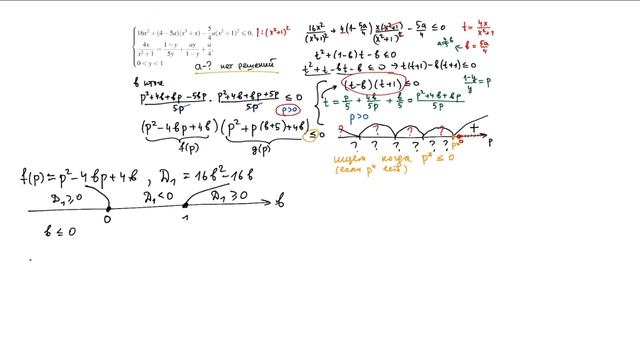 16x² + (4 − 5a)(x³ + x) − 5/4 a(x² + 1)² ≤ 0, | : (x²+1)²
4x/(x² + 1) = (1 − y)/(5y) + ay/(1 − y) + a/4
0 < y < 1
a-? нет решений
16x²/(x²+1)² + 4(1-5a/4) x(x²+1)/(x²+1)² - 5a/4 ≤ 0
t = 4x/(x²+1)
b = 5a/4
t² + (1-b)t - b ≤ 0
t² + t - bt - b ≤ 0 → t(t+1) - b(t+1) ≤ 0
(t-b)(t+1) ≤ 0
(1-y)/y = p
t = p/5 + 4b/5p + b/5 = (p²+4b+bp)/5p
p > 0
в итоге
(p²+4b+bp-5bp)/5p · (p²+4b+bp+5p)/5p ≤ 0
p>0
(p²-4bp+4b)(p²+p(b+5)+4b) ≤ 0
f(p) g(p)
? ? ? ? +
? ? ? ? ? ? p* p
ищем когда p* ≤ 0
(если p* есть)
f(p) = p²-4bp+4b, D₁ = 16b²-16b
D₁ ≥ 0 D₁ < 0 D₁ ≥ 0
0 1 b
b ≤ 0